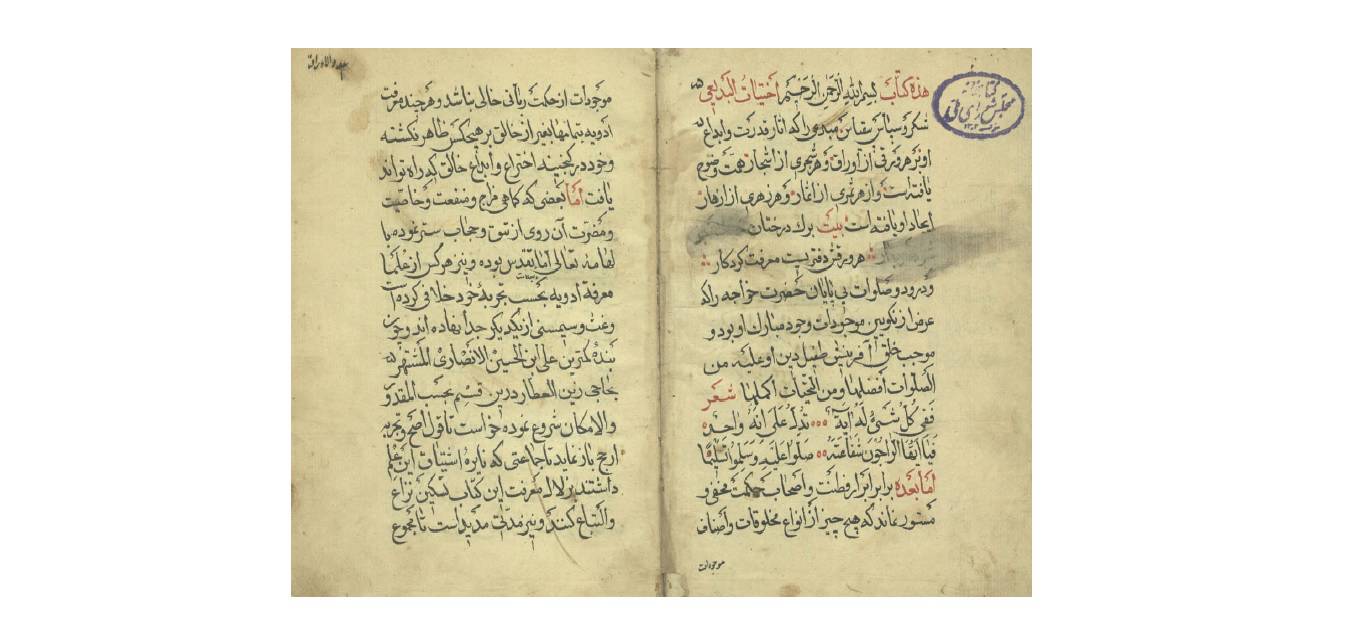 هذه کتاب بسم الله الرحمن الرحیم اختیارات البدیعی
شکر و سپاس بیقیاس مبدعی را که آثار قدرت و ابداع
او بر هر ورقی از اوراق و هر شجری از اشجار همت وضوح
یافته است و از هر ثمری از اثمار و هر زهری از ازهار
ایجاد او یافته است بیت برك درختان
هر ورقش دفتریست معرفت کردکار
و درود و صلوات بی پایان حضرت خواجه را که
غرض از تکوین موجودات وجود مبارك او بود و
موجب خلق آفرینش طفیل دین او علیه من
الصلوات افضلها و من التحیات اکملها شعر
ففی کل شیء له آیة تدل علی انه واحد
فیا ایها الراجون شفاعته صلوا علیه وسلموا تسلیما
اما بعده برابر ابرار فطنت و اصحاب حکمت مخفی و
مستور نماند که هیچ چیز از انواع مخلوقات و اصناف
موجودات
کتابخانه
مجلس شورای ملی
موجودات از حکمت ربانی خالی نباشد و هر چند معرفت
ادویه بتمامها بغیر از خالق بر هیچکس ظاهر نکشته
و خود در کنجینه اختراع و ابداع خالق که راه تواند
یافت اما بعضی که کاهی مزاج و منفعت و خاصیت
و مضرت آن روی از تتق و حجاب ستر نموده با
لهامه تعالی
معرفة ادویه بحسب تجربهٔ خود خلافی کرده ا
از یکدیکر جدا نهاده اند و چون
بندهٔ کمترین علی ابن الحسین الانصاری المشتهر
بحاجی زین العطار درین قسم بحسب المقدور
والامکان شروع نموده خواست تا قول اصح و تجربه
ارجح باز نماید تا جماعتی که نایرهٔ اشتیاق این علم
داشتند بزلال معرفت این کتاب تسکین نزاع
و التیاع کنند و نیز مدتی مدید است تا مجموع